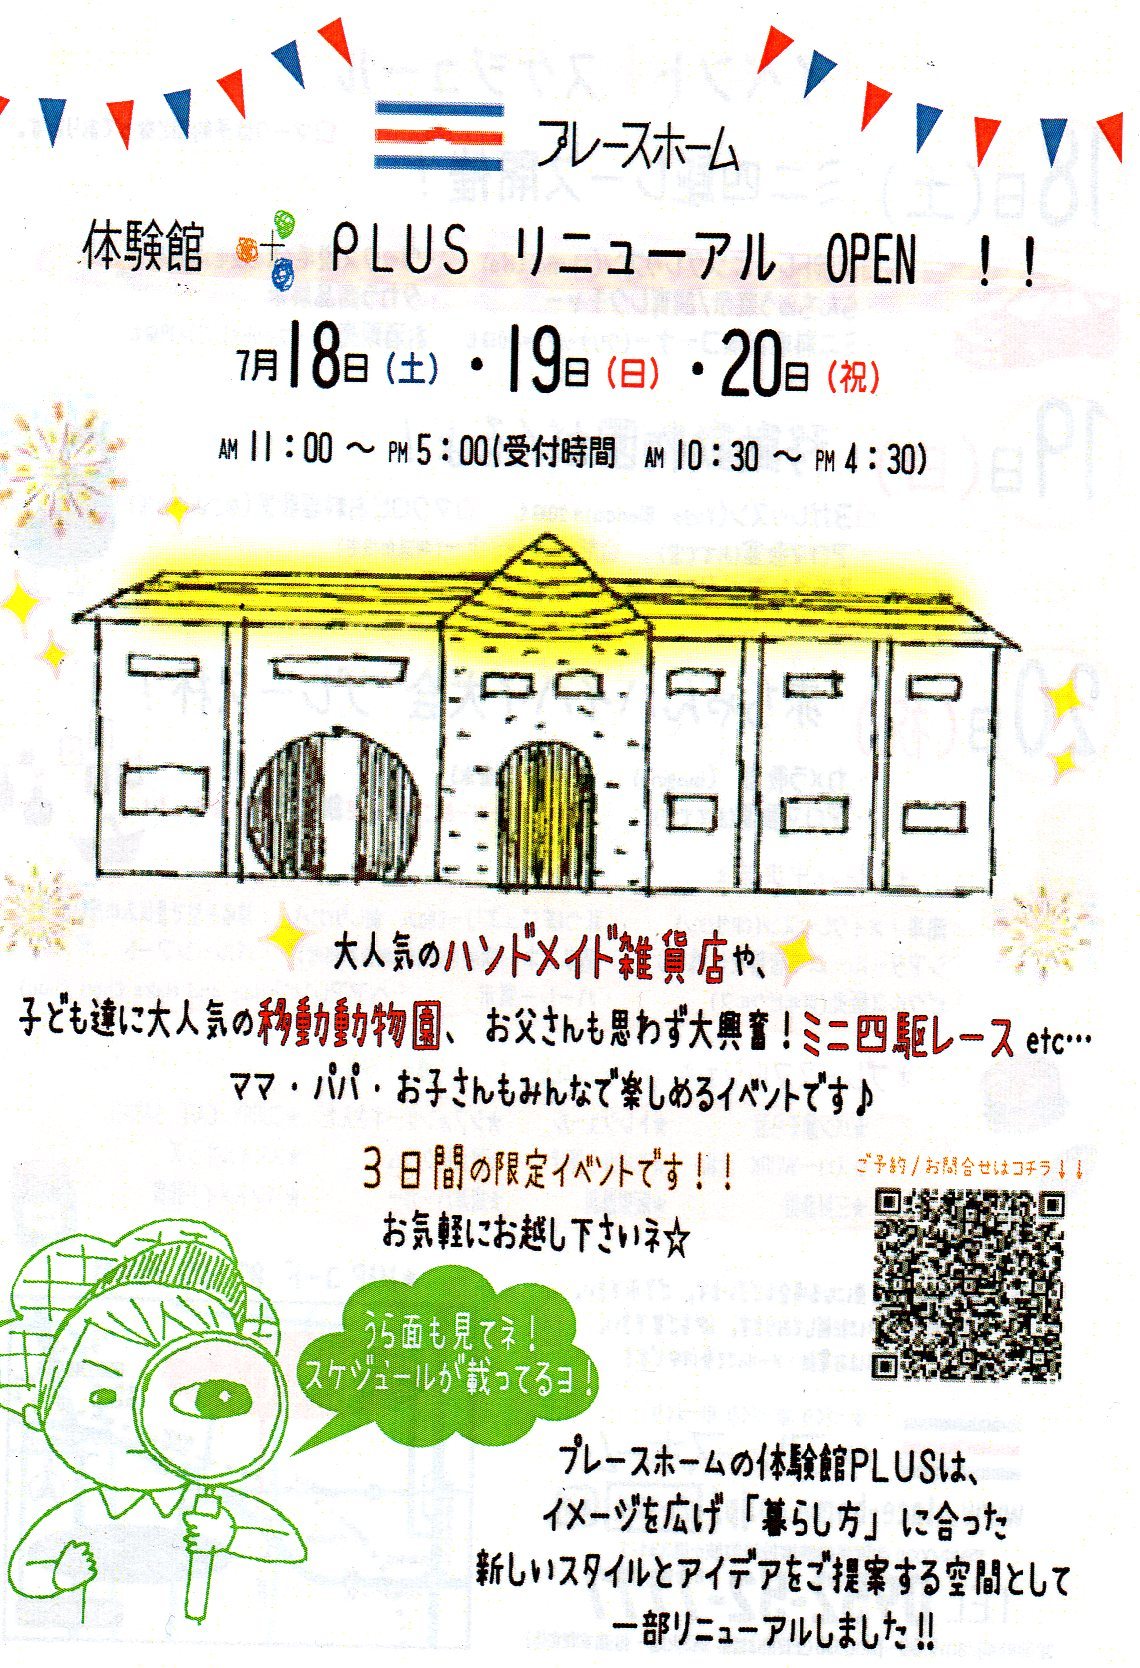 プレースホーム
体験館 + PLUS リニューアル OPEN !!
7月18日(土)・19日(日)・20日(祝)
AM 11:00 ～ PM 5:00(受付時間 AM 10:30 ～ PM 4:30)
大人気のハンドメイド雑貨店や、
子ども達に大人気の移動動物園、お父さんも思わず大興奮!ミニ四駆レース etc…
ママ・パパ・お子さんもみんなで楽しめるイベントです♪
3日間の限定イベントです!!
お気軽にお越し下さいネ☆
ご予約/お問合せはコチラ↓↓
うら面も見てネ!
スケジュールが載ってるヨ!
プレースホームの体験館PLUSは、
イメージを広げ「暮らし方」に合った
新しいスタイルとアイデアをご提案する空間として
一部リニューアルしました!!